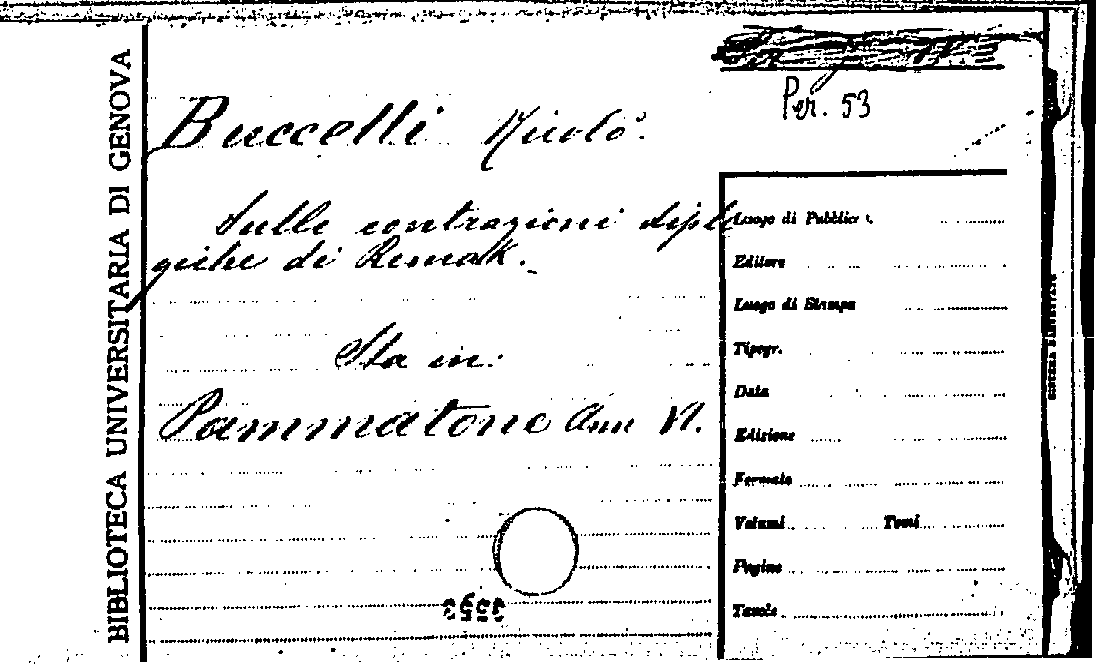 BIBLIOTECA UNIVERSITARIA DI GENOVA
Per. 53
Buccelli Nicolò.
Sulle contrazioni diplo
giche di Remak.
Sta in:
Pammatone Ann VI.
Luogo di Pubblic
Editore
Luogo di Stampa
Tipogr.
Data
Edizione
Formato
Volumi Tomi
Pagine
Tavole